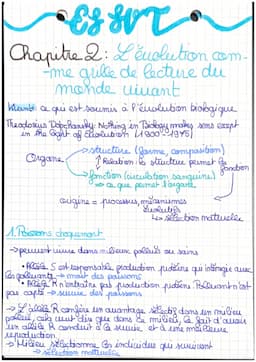 ES SVT
Chapitre 2: L'évolution com-
-me grille de lecture du
monde vivant
Vivant: ce qui est soumis à l'évolution biologique
Theodosius Dobzhansky: Nothing in Biology makes sens except
in the light of Evolution (1900-1975)
structure (forme, composition)
Organe
↑ Relation: la structure permet la fonction
fonction (circulation sanguine)
→ ce que permet l'organe
origine = processus, mécanismes
évolutifs
→ sélection naturelle
1. Poissons
→ peuvent vivre dans milieux pollués ou sains
S est responsable production protéine qui interagit avec
les polluants → mort des poissons
R n'entraîne pas production protéine. Polluant n'est
pas capté → survie des poissons
→ L'allèle R confère un avantage sélectif dans un milieu
pollué, cela veut dire que dans ce milieu, le fait d'avoir
un allèle R conduit à la survie et à une meilleure
reproduction.
→ Milieu sélectionne les individus qui survivent
→ sélection naturelle